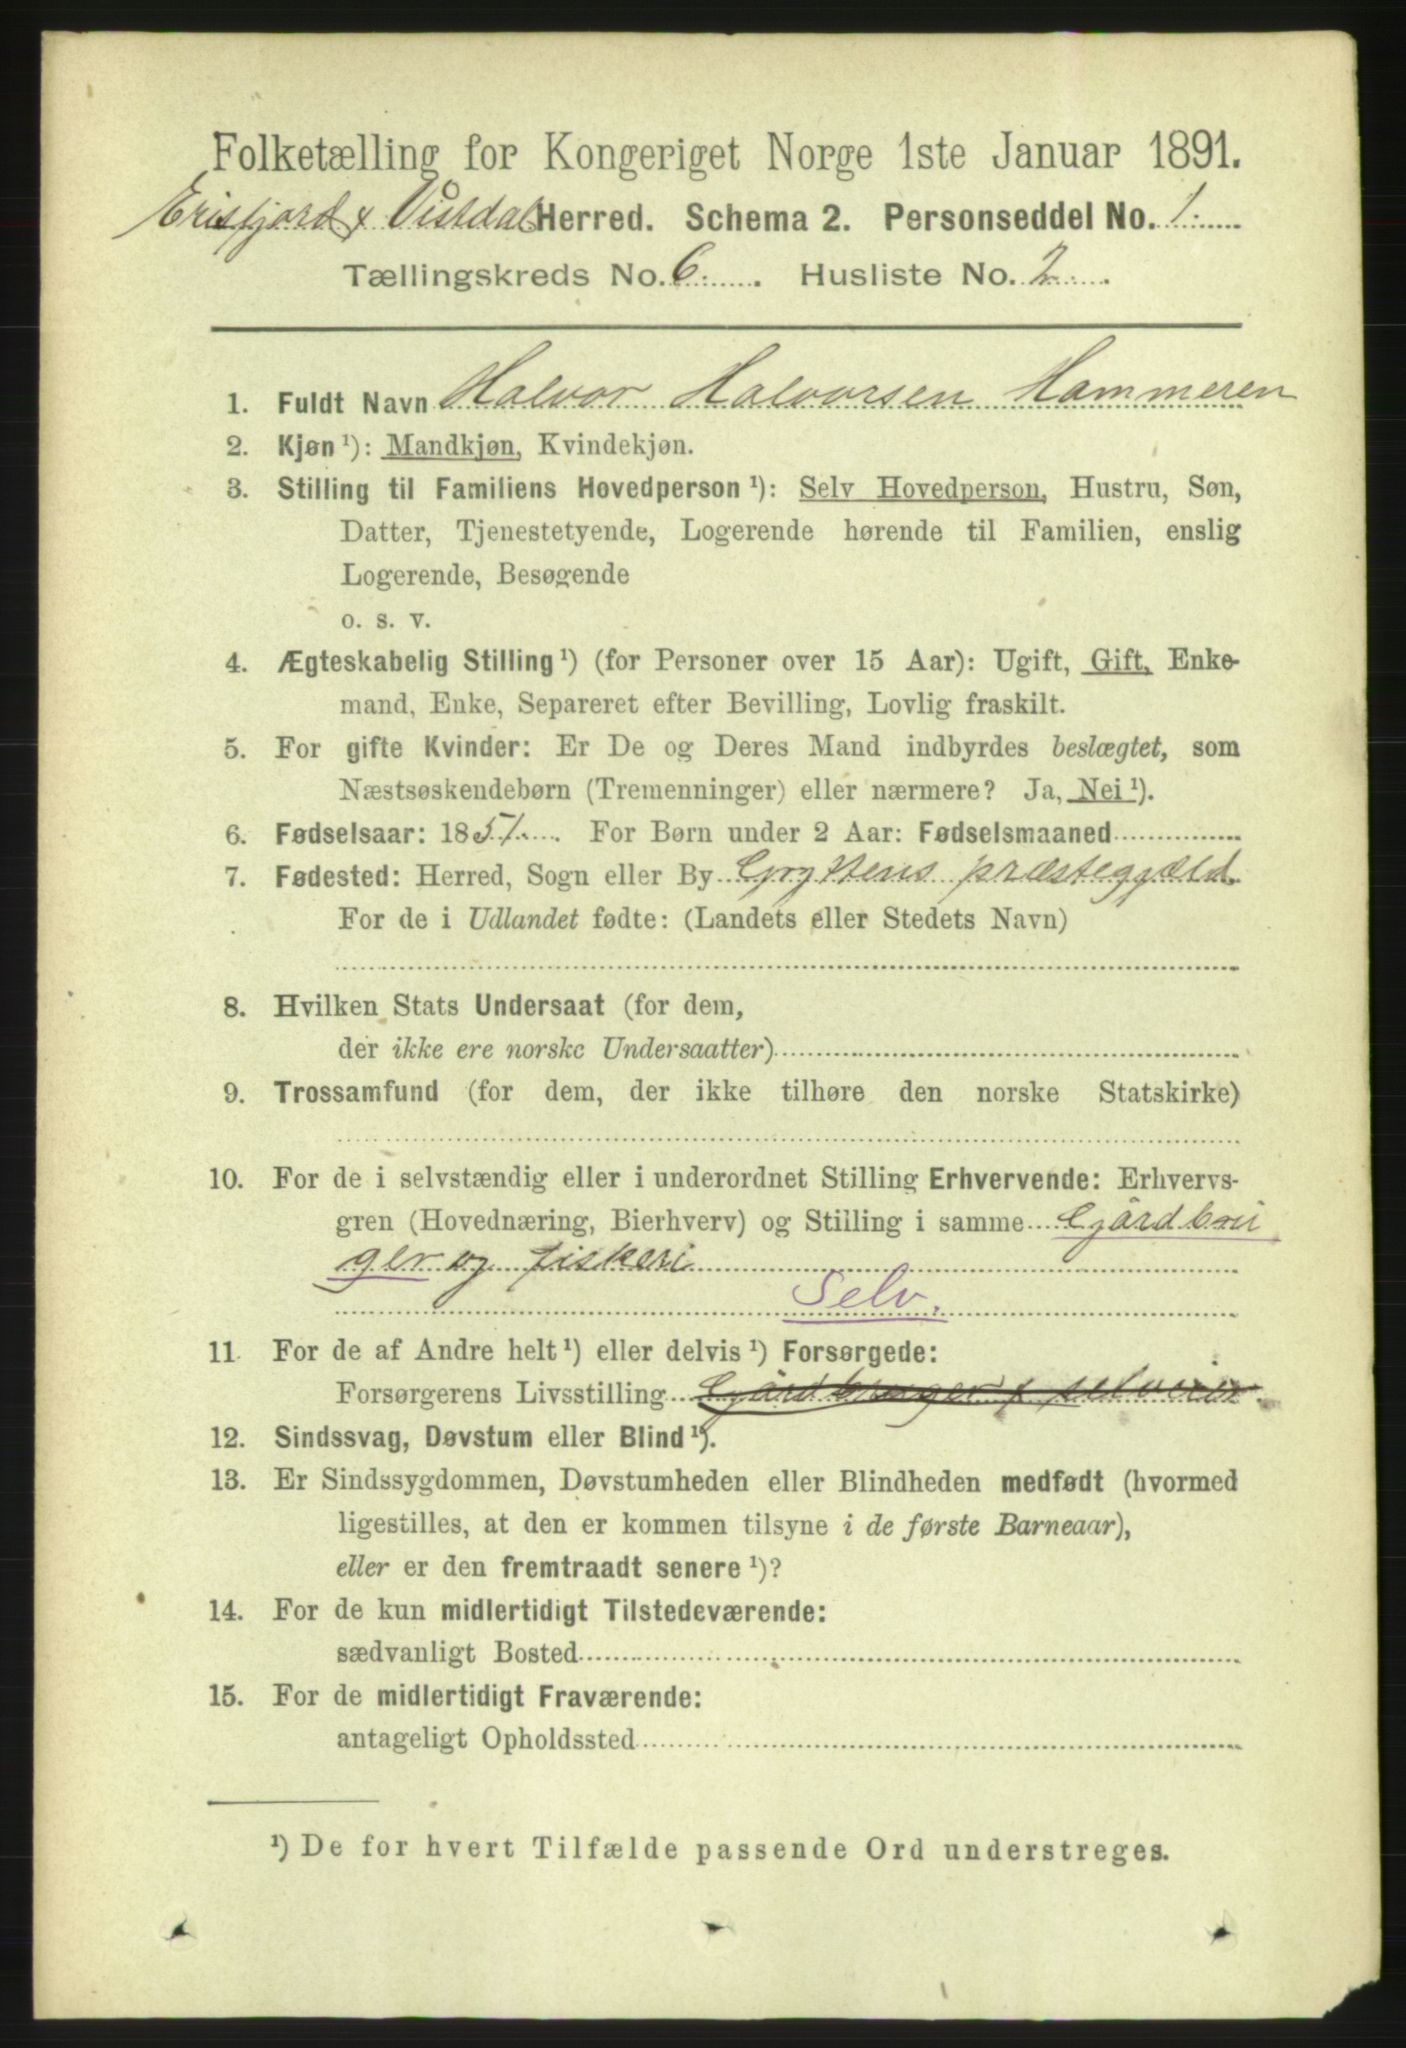 Folketælling for Kongeriget Norge 1ste Januar 1891.
Erisfjord & Vistdal Herred. Schema 2. Personseddel No. 1.
Tællingskreds No. 6. Husliste No. 2.
1. Fuldt Navn Halvor Halvorsen Hammeren
2. Kjøn ¹): Mandkjøn, Kvindekjøn.
3. Stilling til Familiens Hovedperson ¹): Selv Hovedperson, Hustru, Søn,
Datter, Tjenestetyende, Logerende hørende til Familien, enslig
Logerende, Besøgende
o. s. v.
4. Ægteskabelig Stilling ¹) (for Personer over 15 Aar): Ugift, Gift, Enke-
mand, Enke, Separeret efter Bevilling, Lovlig fraskilt.
5. For gifte Kvinder: Er De og Deres Mand indbyrdes beslægtet, som
Næstsøskendebørn (Tremenninger) eller nærmere? Ja, Nei ¹).
6. Fødselsaar: 1851. For Børn under 2 Aar: Fødselsmaaned
7. Fødested: Herred, Sogn eller By Gryttens præstegjæld.
For de i Udlandet fødte: (Landets eller Stedets Navn)
8. Hvilken Stats Undersaat (for dem,
der ikke ere norske Undersaatter)
9. Trossamfund (for dem, der ikke tilhøre den norske Statskirke)
10. For de i selvstændig eller i underordnet Stilling Erhvervende: Erhvervs-
gren (Hovednæring, Bierhverv) og Stilling i samme Gårdbru
ger og fiskeri
Selv.
11. For de af Andre helt ¹) eller delvis ¹) Forsørgede:
Forsørgerens Livsstilling Gårdbruger & selveier.
12. Sindssvag, Døvstum eller Blind ¹).
13. Er Sindssygdommen, Døvstumheden eller Blindheden medfødt (hvormed
ligestilles, at den er kommen tilsyne i de første Barneaar),
eller er den fremtraadt senere ¹)?
14. For de kun midlertidigt Tilstedeværende:
sædvanligt Bosted
15. For de midlertidigt Fraværende:
antageligt Opholdssted
¹) De for hvert Tilfælde passende Ord understreges.